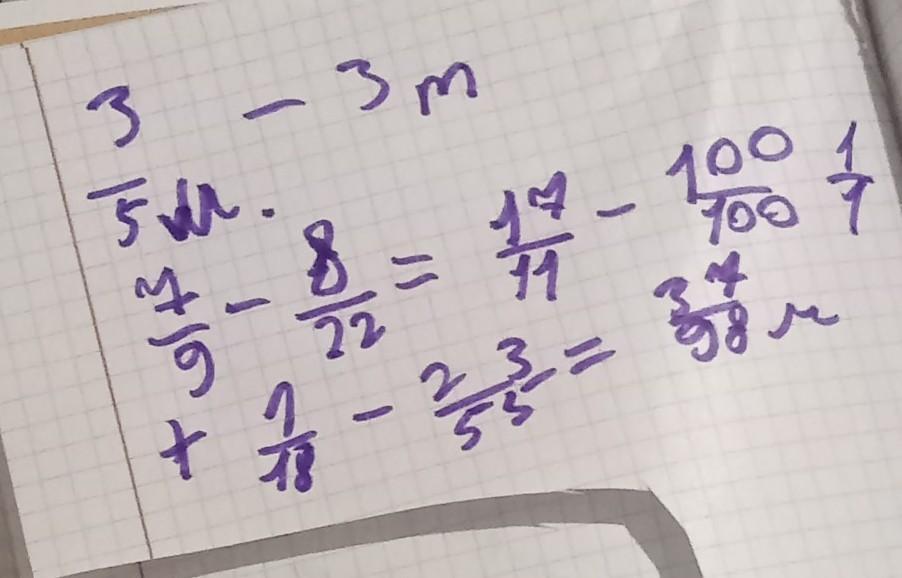 3/5 м. - 3 m
7/9 - 8/22 = 17/11 - 100/100 1/1
+ 1/18 - 23/55 = 37/98 м